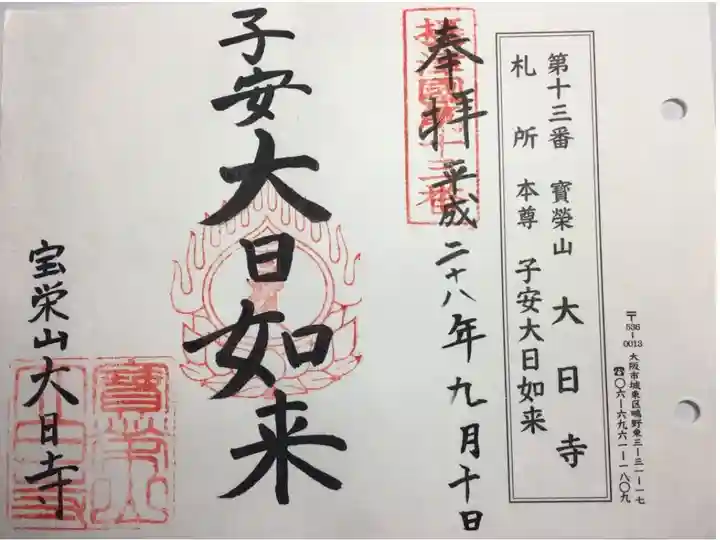 〒536-0013 大阪市城東区鴫野東三-三一-一七
☎〇六-六九六一-一八〇九
第十三番 寶榮山 大日寺
札所 本尊 子安大日如来
奉拝 平成二十八年九月十日
摂津國第十三番
子安大日如来
宝栄山大日寺
寶榮山
大日寺